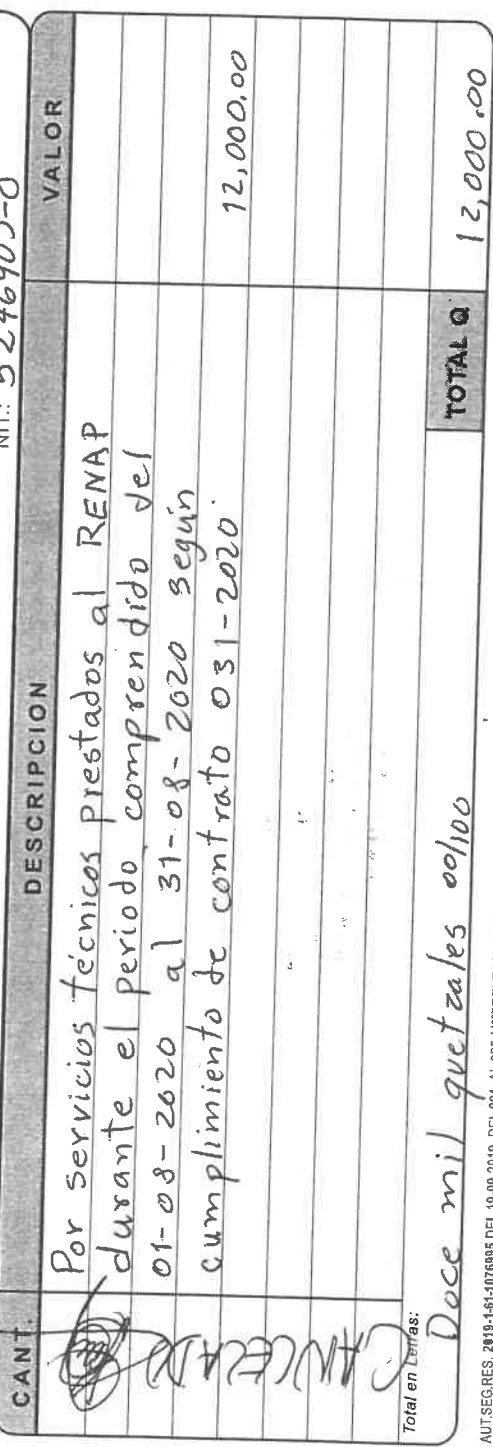 NIT.:
CANT. DESCRIPCION VALOR
Por servicios técnicos prestados al RENAP
durante el periodo comprendido del
01-08-2020 al 31-08-2020 según
cumplimiento de contrato 031-2020. 12,000.00
CANCELADO
Total en Letras:
Doce mil quetzales 00/100
TOTAL Q 12,000.00
AUT.SEG.RES. 2019-1-61-1076995 DEL 19-09-2019